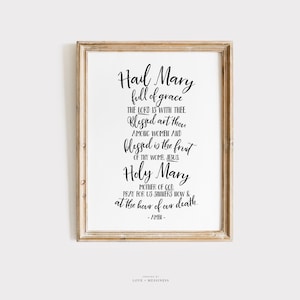 Hail Mary
full of grace
THE LORD IS WITH THEE.
Blessed art thou
AMONG WOMEN AND
blessed is the fruit
OF THY WOMB, JESUS.
Holy Mary
MOTHER OF GOD,
PRAY FOR US SINNERS NOW &
at the hour of our death.
- AMEN -